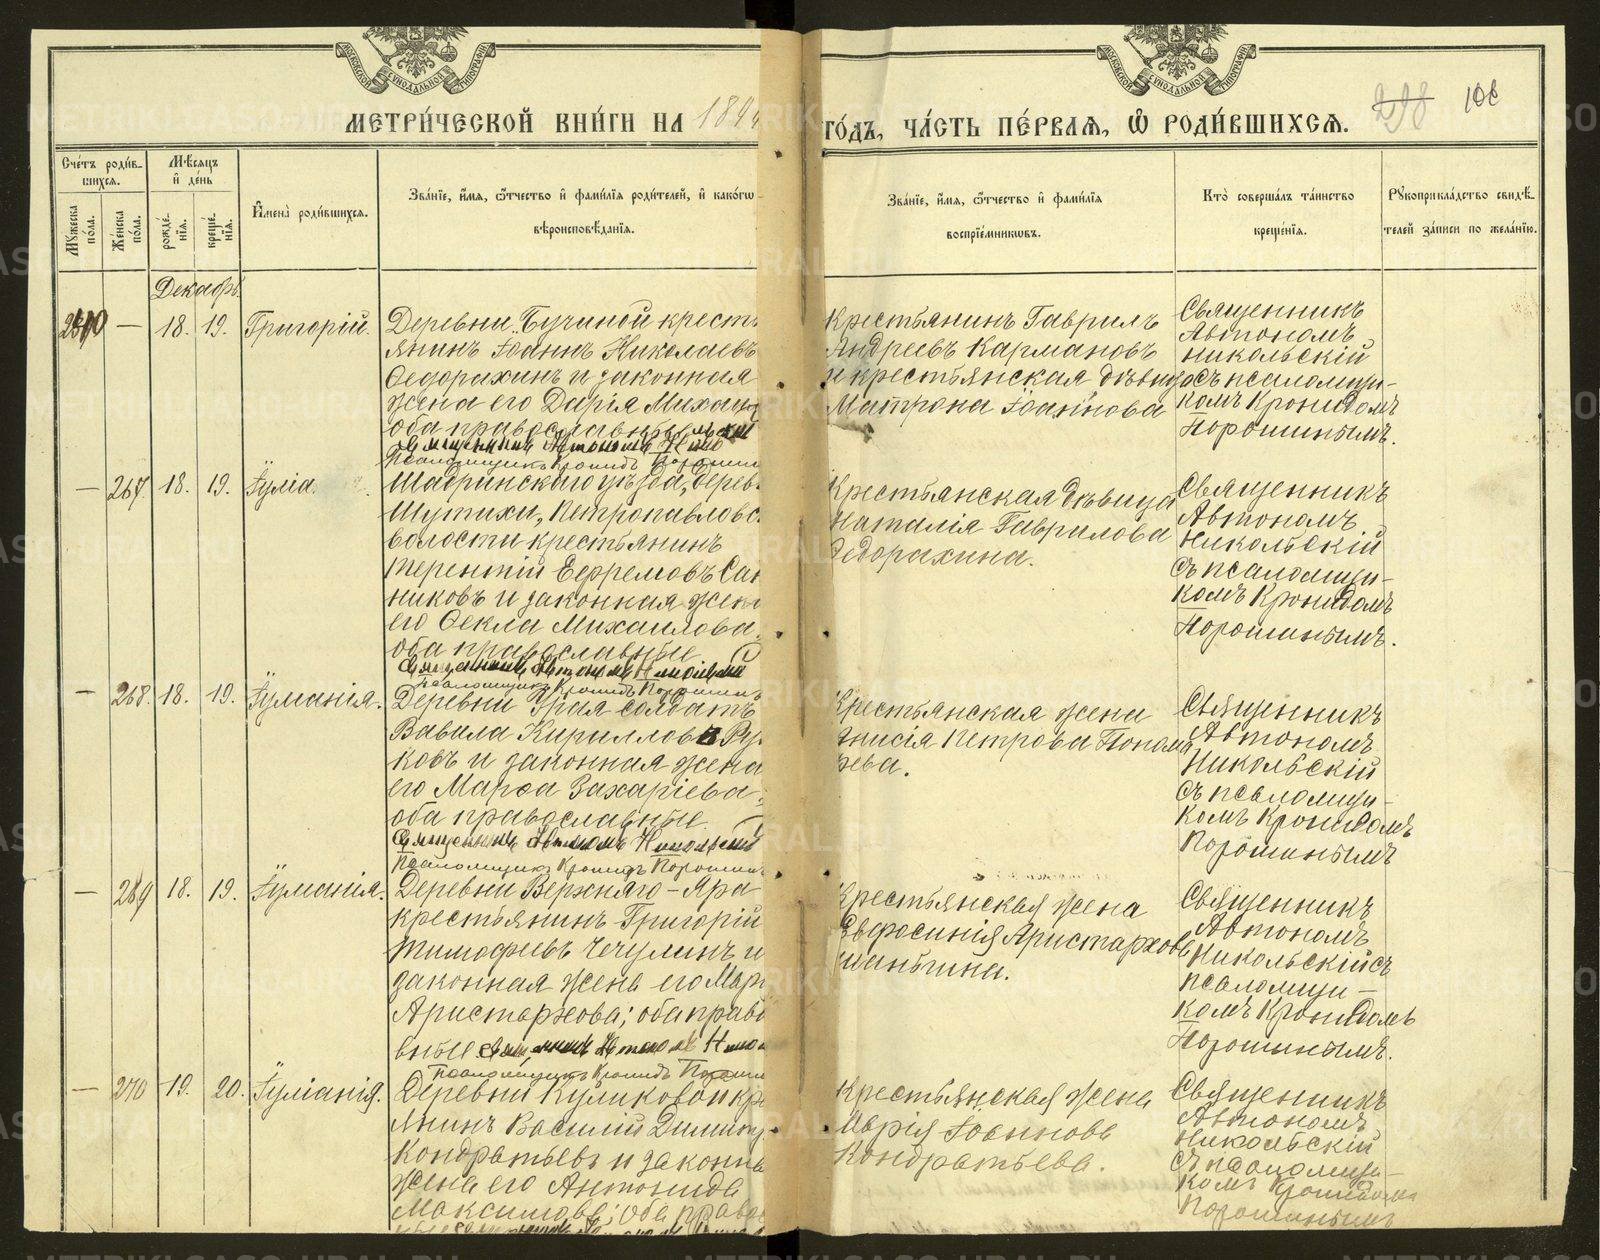 МОСКОВСКОЙ СѴНОДАЛЬНОЙ ТИПОГРАФІИ
МОСКОВСКОЙ СѴНОДАЛЬНОЙ ТИПОГРАФІИ
МЕТРИ́ЧЕСКОЙ КНИ́ГИ НА 189
ГО́ДЪ, ЧА́СТЬ ПЕ́РВАѦ, Ѡ҆ РОДИ́ВШИХСѦ. 298
Сче́тъ роди́в-
шихсѧ.
Мꙋ́жеска по́ла.
Же́нска по́ла.
Мѣ́сѧцъ и҆ де́нь
рожде́-нїѧ.
креще́-нїѧ.
И҆мена̀ роди́вшихсѧ.
Зва́нїе, и҆́мѧ, ѻ҆́тчество и҆ фами́лїѧ роди́телей, и҆ како́гѡ
вѣроисповѣ́данїѧ.
Зва́нїе, и҆́мѧ, ѻ҆́тчество и҆ фами́лїѧ
воспрїе́мникѡвъ.
Кто̀ соверша́лъ та́инство
креще́нїѧ.
Рꙋкоприкла́дство свидѣ́-
телей за́писи по жела́нїю.
Декабрь.
— 18. 19. Григорій.
Деревни Бучиной кресть
янинъ Іоаннъ Николаевъ
Федорахинъ и законная
жена его Дарія Михаил
оба православные
Священникъ Автономъ Нико
Псаломщикъ Кронидъ Порошин
Крестьянинъ Гаврилъ
Андреевъ Кармановъ
и крестьянская дѣвица
Матрона Іоаннова
Священникъ
Автономъ
Никольскій
съ псаломщи-
комъ Кронидомъ
Порошинымъ.
— 267 18. 19. Іуліа.
Шадринскаго уѣзда, дерев
Шутихи, Петропавловс
волости крестьянинъ
Терентій Ефремовъ Сан
никовъ и законная жена
его Фекла Михаилова
оба православные
Священникъ Автономъ Никольскій
Псаломщикъ Кронидъ Порошинъ
Крестьянская дѣвица
Наталія Гаврилова
Федорахина.
Священникъ
Автономъ
Никольскій
съ псаломщи-
комъ Кронидомъ
Порошинымъ.
— 268. 18. 19. Іуліанія.
Деревни солдатъ
Вавила Кирилловъ
ковъ и законная жена
его Марфа Захаріева
оба православные
Священникъ Автономъ Никольскій
Псаломщикъ Кронидъ Порошин
Крестьянская жена
Анисія Петрова Поном
рева.
Священникъ
Автономъ
Никольскій
съ псаломщи-
комъ Кронидомъ
Порошинымъ
— 269 18. 19. Іуліанія.
Деревни Верхняго-Яра
крестьянинъ Григорій
Тимофеевъ Чечулинъ и
законная жена его Мар
Аристархова; оба право
вные Священникъ Автономъ Нико
Псаломщикъ Кронидъ Пороши
Крестьянская жена
Евфросинія Аристархова
Священникъ
Автономъ
Никольскій съ
псаломщи-
комъ Кронидомъ
Порошинымъ.
— 270 19. 20. Іуліанія.
Деревни Куликовой кре
янинъ Василій Димитр
Кондратьевъ и законна
жена его Антонида
Максимова; оба правос
Крестьянская жена
Марія Іоаннова
Кондратьева.
Священникъ
Автономъ
Никольскій
съ псаломщи-
комъ Кронидомъ
Порошинымъ
METRIKI-GASO-URAL.RU